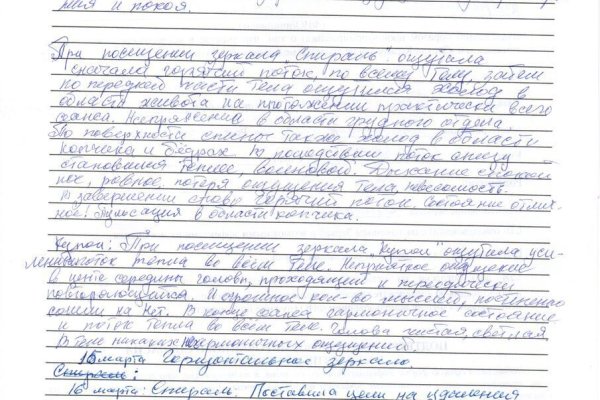 ния и покоя.
При посещении зеркала "Спираль" ощутила
сначала горячий поток, по всему телу, затем
по передней части тела ощущался холод в
области живота на протяжении практически всего
сеанса. Напряжение в области грудного отдела.
По поверхности спины также холод в области
копчика и бедрах. В последствии поток снизу
становился теплее, волновой. Дыхание спокой
ное, ровное, потеря ощущения тела, невесомость.
В завершении снова горячий поток. Состояние отлич-
ное. Пульсация в области копчика.
Купол: При посещении зеркала "Купол" ощутила уси-
ление поток тепла во всем теле. Неприятное ощущение
в центе середины головы, проходящий и периодически
повторяющийся. И огромное кол-во мыслей, постепенно
сошли на нет. В конце сеанса гармоничное состояние
и поток тепла во всем теле. Голова чистая, светлая
В теле никаких негармоничных ощущений.
15 марта Горизонтальное зеркало.
Спираль:
16 марта: Спираль. Поставила цели на удаления